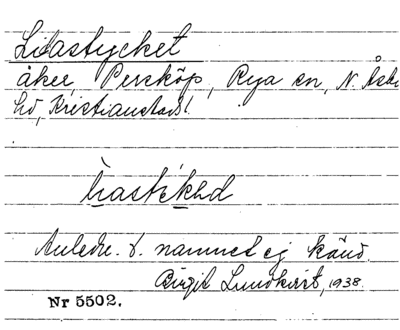 Lidastycket
åker, Persköp, Rya sn, N. Åsbo
hd, Kristianstads l.
Anledn. t. namnet ej känd.
Birgit Lundkvist, 1938.
Nr 5502.